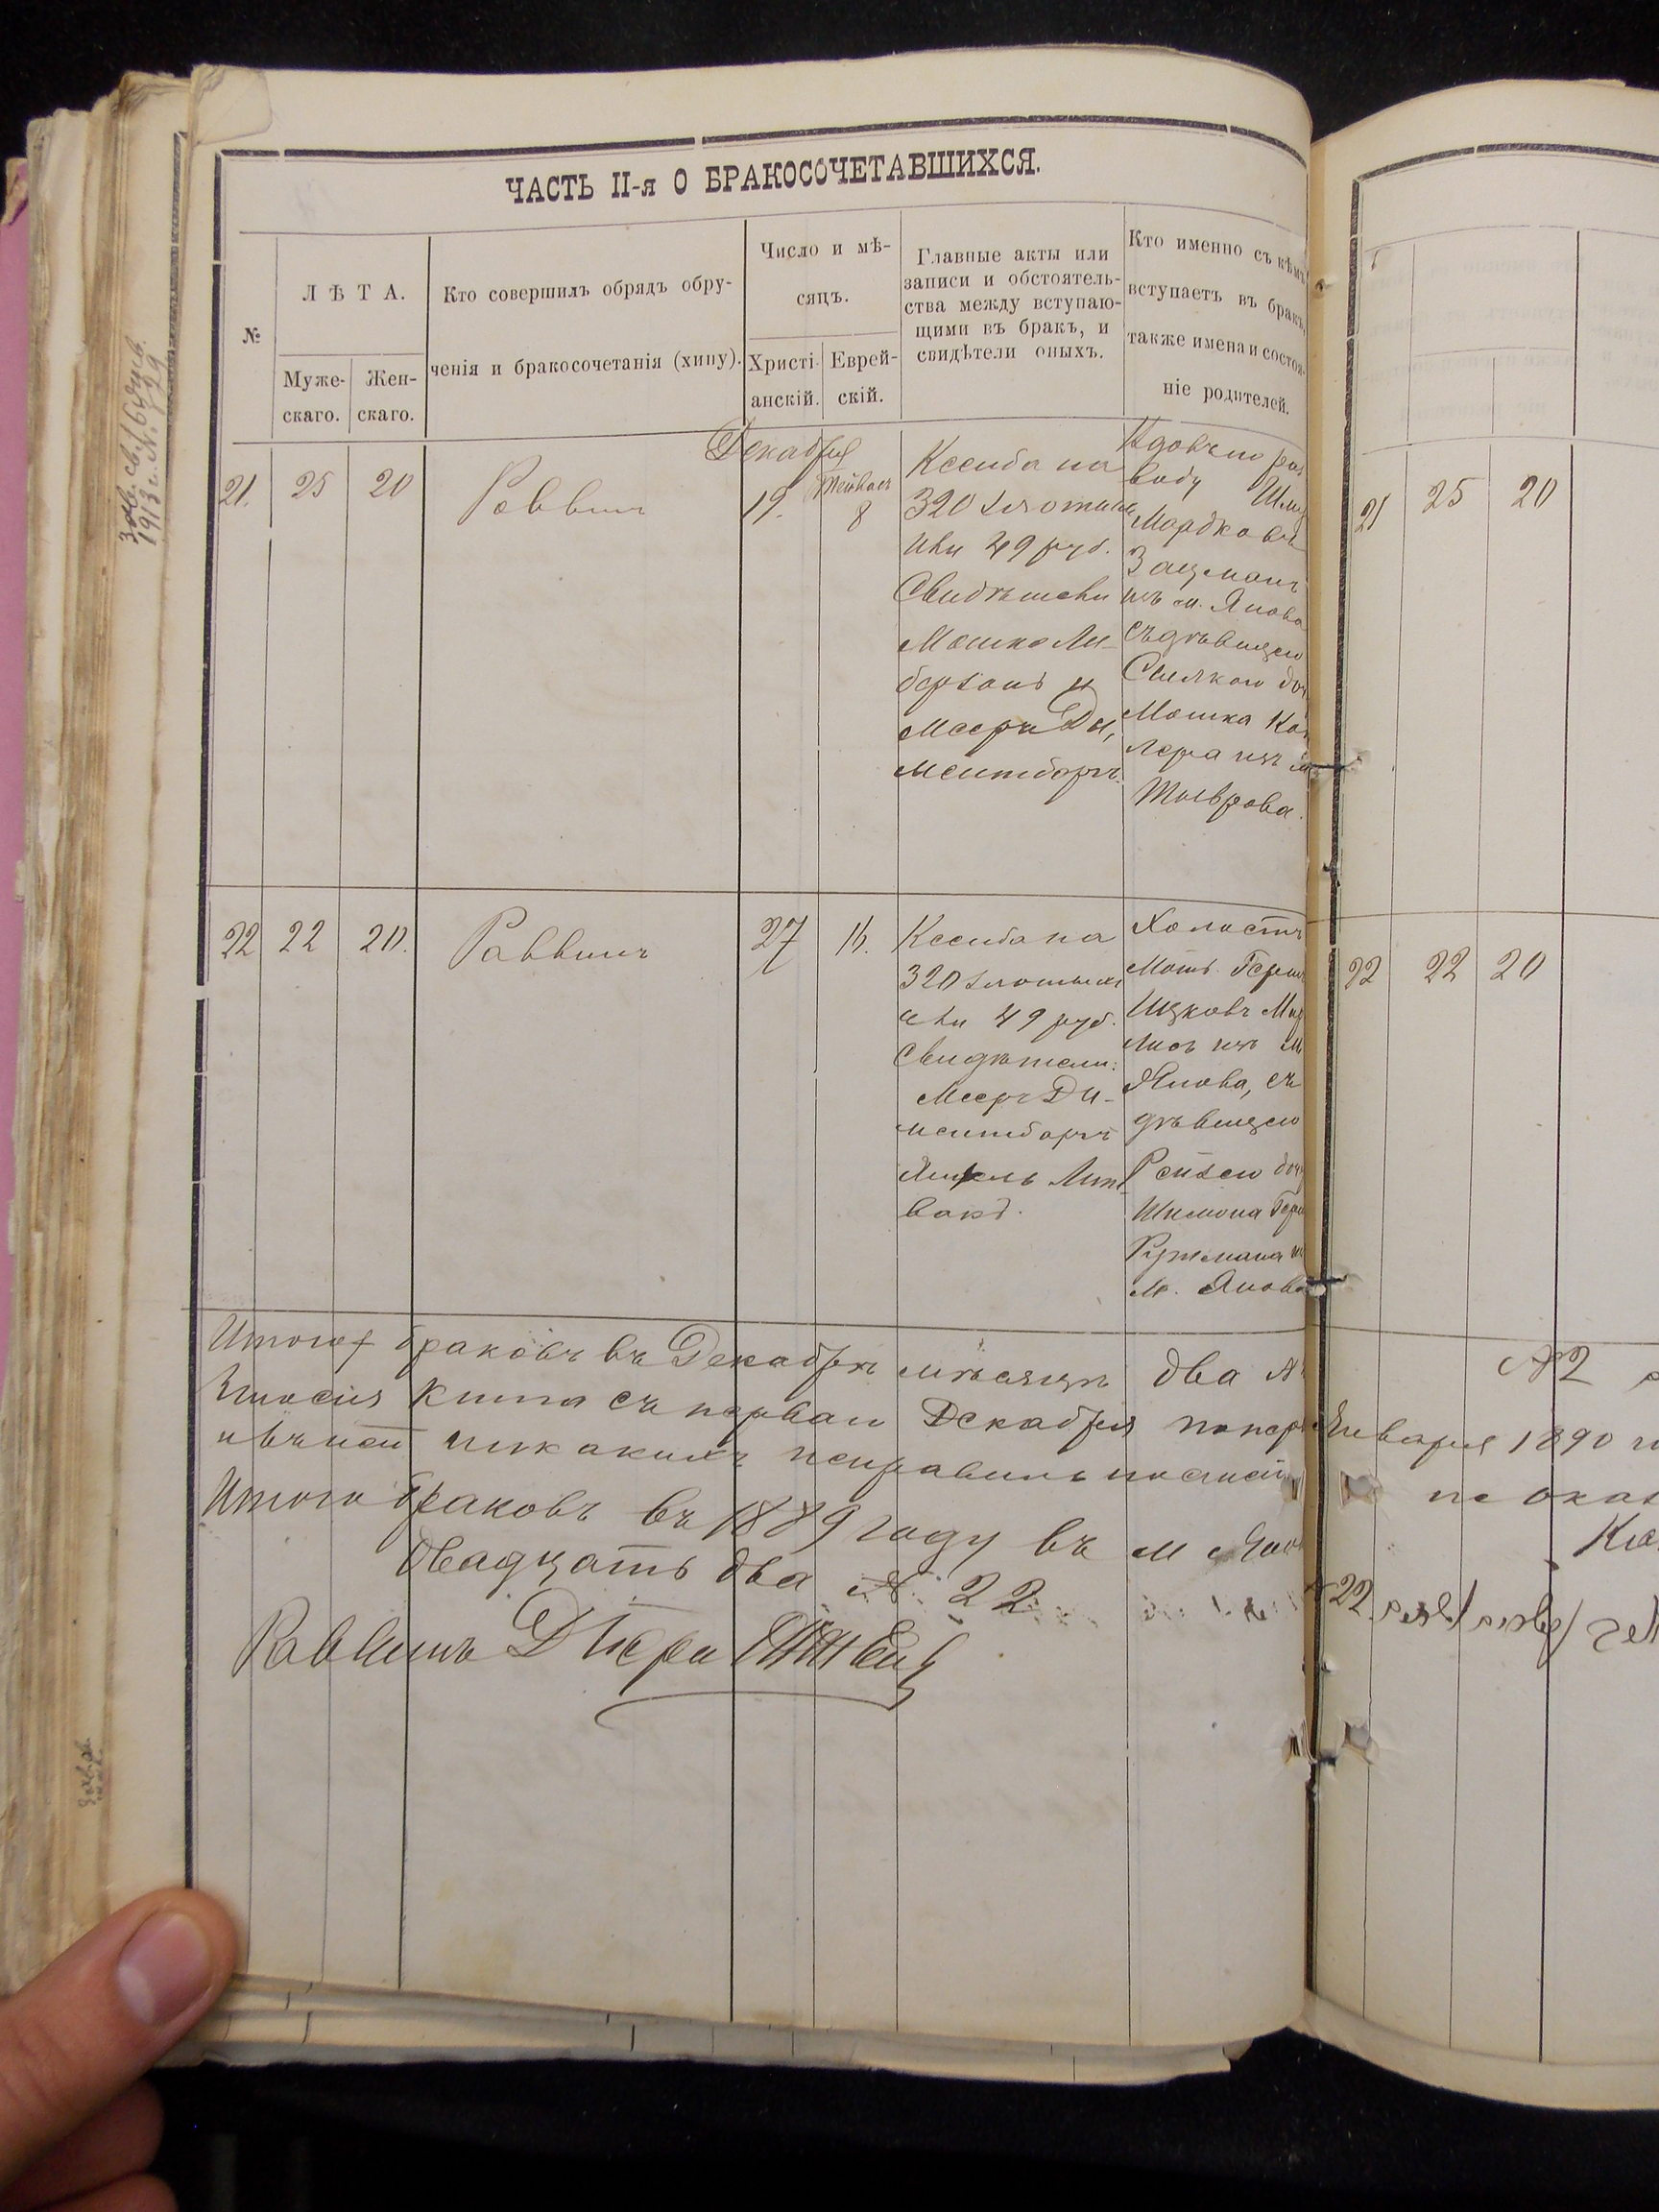 ЧАСТЬ II-я О БРАКОСОЧЕТАВШИХСЯ.
№
ЛѢТА.
Муже-
скаго.
Жен-
скаго.
Кто совершилъ обрядъ обру-
ченія и бракосочетанія (хипу).
Число и мѣ-
сяцъ.
Христі-
анскій.
Еврей-
скій.
Главные акты или
записи и обстоятель-
ства между вступаю-
щими въ бракъ, и
свидѣтели оныхъ.
Кто именно съ кѣмъ
вступаетъ въ бракъ,
также имена и состоя-
ніе родителей.
Декабря
21. 25 20 Раввинъ 19. Тейвасъ 8
Ксеиба на
320 злотыхъ
или 49 руб.
Свидѣтели
Мошко Ли-
берзонъ и
Мееръ Ди,
ментбаръ.
воду Шлё
Мордковъ
Зацманъ
изъ м. Янова
съ дѣвицею
дочь
Мошка
лера изъ м
Тыврова.
22 22 20. Раввинъ 27 16.
Ксеиба на
320 злотыхъ
или 49 руб.
Свидѣтели:
Мееръ Ди-
ментбаръ
Янкель Лит-
вакъ.
Холостъ
Герш
Ицковъ
изъ м
Янова, съ
дѣвицею
Рейзею доч
Шимона Гер
Ружмана из
м. Янова
Итого браковъ въ Декабрѣ мѣсяцѣ два №
книга съ перваго Декабря по пер
никакихъ неправильностей
Итого браковъ въ 1889 году въ м Янов
двадцать два № 22
Раввинъ Д
21 25 20
22 22 20
№2
Января 1890 г
не оказ
22
1913 г. №